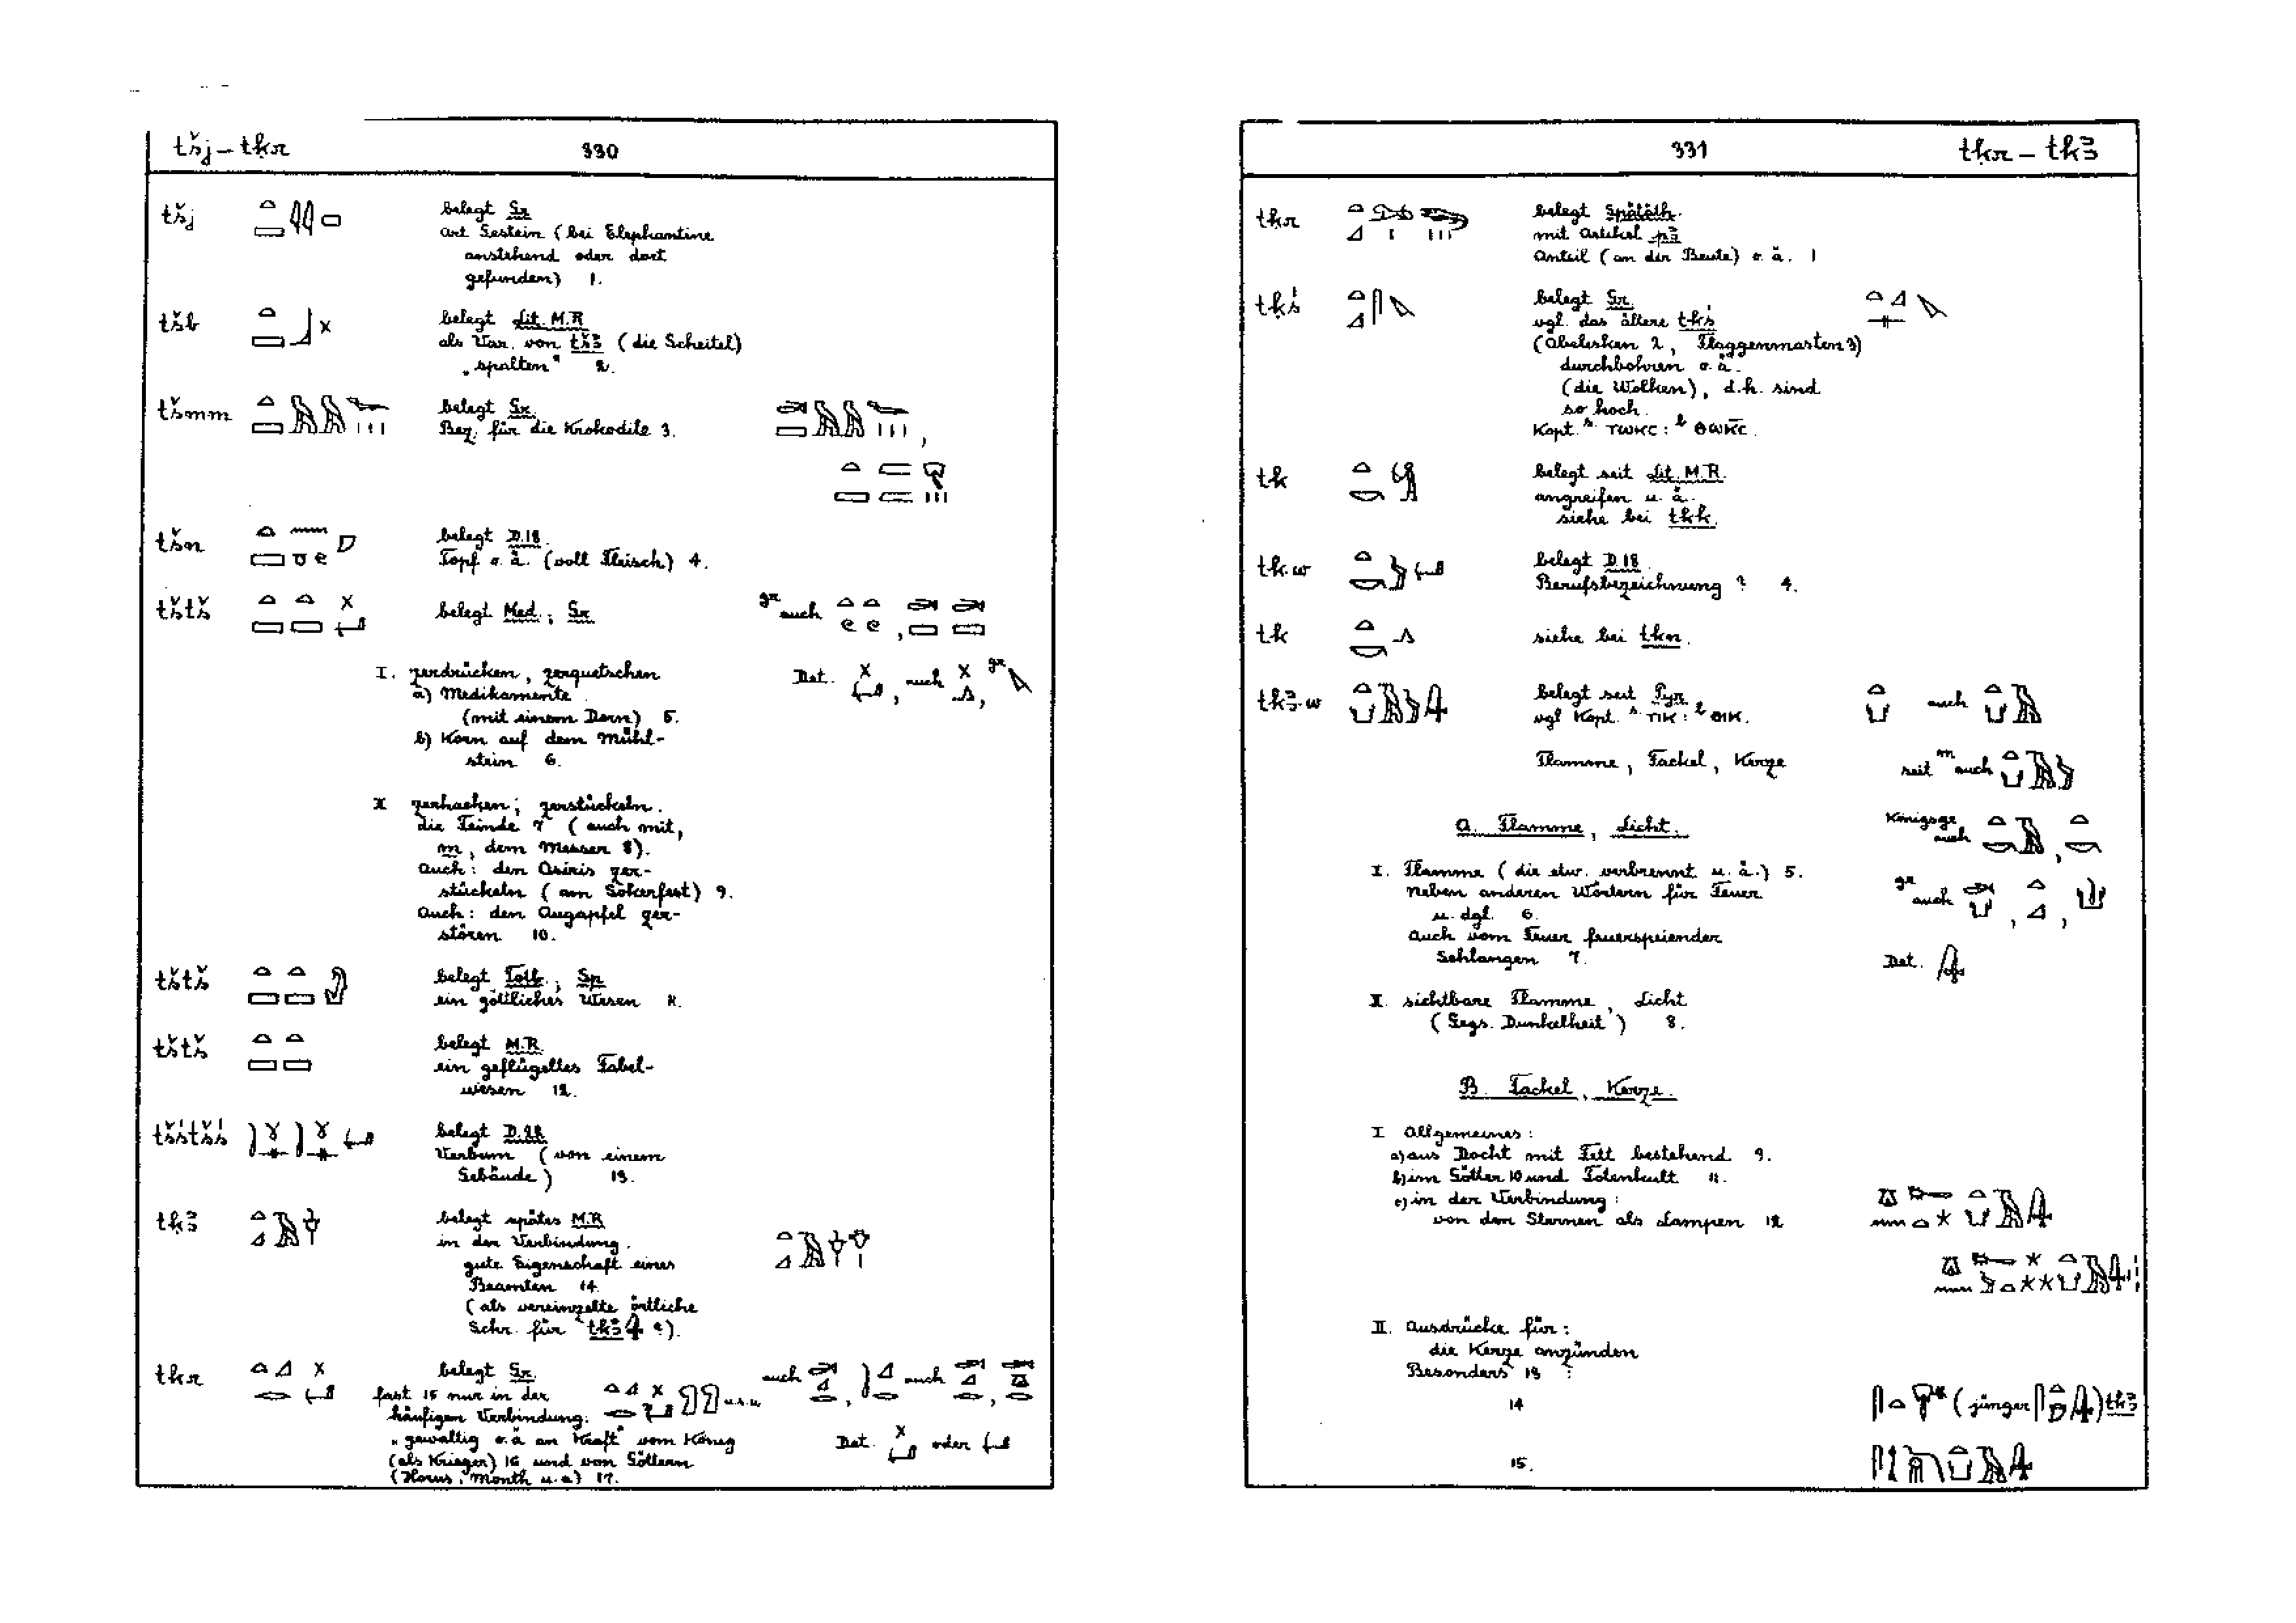 tšj – tḳr 330
tšj
belegt Gr.
Art Gestein (bei Elephantine
anstehend oder dort
gefunden) 1.
tšb
belegt Lit. M.R
als Var. von tšꜣ (die Scheitel)
„spalten" 2.
tšmm
belegt Gr.
Bez. für die Krokodile 3.
tšn
belegt D.18.
Topf o.ä. (voll Fleisch) 4.
tštš
belegt Med.; Gr. gr auch
I. zerdrücken, zerquetschen Det. , auch , gr
a) Medikamente
(mit einem Dorn) 5.
b) Korn auf dem Mühl-
stein 6.
II zerhacken; zerstückeln.
die Feinde 7 (auch mit,
m, dem Messer 8).
Auch: den Osiris zer-
stückeln (am Sokarfest) 9.
Auch: den Augapfel zer-
stören 10.
tštš
belegt Totb.; Sp
ein göttliches Wesen 11.
tštš
belegt M.R.
ein geflügeltes Fabel-
wesen 12.
tšśtšś
belegt
Verbum (von einem
Gebäude) 13.
tḳꜣ
belegt spätes M.R
in der Verbindung.
gute Eigenschaft eines
Beamten 14.
(als vereinzelte örtliche
Schr. für tkꜣ ?).
tḳr
belegt Gr. auch , auch ,
fast 15 nur in der u.s.w.
häufigen Verbindung:
„gewaltig o.ä an Kraft" vom König Det. oder
(als Krieger) 16 und von Göttern
(Horus, Month u.a) 17.
331 tḳr – tkꜣ
tḳr
belegt Spätäth.
mit Artikel pꜣ
Anteil (an der Beute) o.ä. 1
tḳś
belegt Gr.
vgl. das ältere tkś
(Obelisken 2, Flaggenmasten 3)
durchbohren o.ä.
(die Wolken), d.h. sind
so hoch.
Kopt. s. ⲧⲱⲕⲥ : b ⲑⲱⲕⲥ.
tk
belegt seit Lit. M.R.
angreifen u.ä.
siehe bei tkk.
tk.w
belegt D.18.
Berufsbezeichnung ? 4.
tk
siehe bei tkn.
tkꜣ.w
belegt seit Pyr. auch
vgl Kopt. s ⲧⲓⲕ : b ⲑⲓⲕ.
Flamme, Fackel, Kerze seit m auch
A. Flamme, Licht. Königsgr auch
I. Flamme (die etw. verbrennt u.ä.) 5.
neben anderen Wörtern für Feuer gr auch
u. dgl. 6.
Auch vom Feuer feuerspeiender
Schlangen 7. Det.
II. sichtbare Flamme, Licht
(Ggs. Dunkelheit) 8.
B. Fackel, Kerze.
I Allgemeines:
a) aus Docht mit Fett bestehend 9.
b) im Götter 10 und Totenkult 11.
c) in der Verbindung:
von den Sternen als Lampen 12
II. Ausdrücke für:
die Kerze anzünden
Besonders 13 :
14 (jünger ) tkꜣ
15.